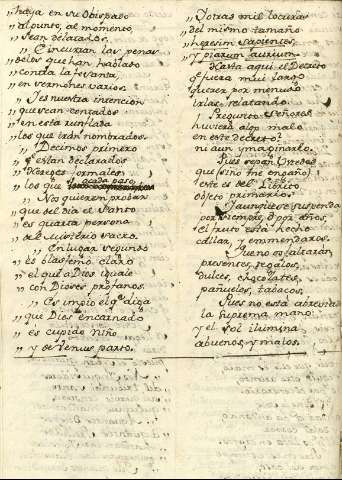 „haya en su Obispado
„al punto, al momento,
„sean declarados.
„È incurran las penas
„ ò los que han hablado
„contra la
„en sermones varios.
„Y es nuestra intencion
„que sean contados
„en esta
„los que iràn nombrados.
„Decimos primero
„q estàn declarados
„Hereges formales
„los que à cada paso
„Nos quieren probar
„que del dia el Santo
„es quarta persona
„del Misterio sacro.
„En lugar segundo
„es blasfemo claro
„el que à Dios iguale
„con Dioses profanos.
„Es impio el q diga
„que Dios encarnado
„es cupido niño
„y de Venus parto.
„Y otras mil locuras
del mismo tamaño
heresim sapientes,
y piarum aurium.
Hasta aqui el Decreto
q fuera mui largo
querer por menudo
irlas relatando.
Pregunto Señores
huviera algo malo
en este decreto?
ni aun ymaginarlo.
Pues sepan Vstedes
que (sino me engaño)
este es del Librito
objeto primario.
Y aunque se suspenda
por siempre, ò por años,
el fruto està hecho
callar, y enmendaros.
Pues no os faltaràn
presentes, regalos,
dulces, chocolates,
pañuelos, tabacos.
Pues no està abreviada
la Suprema mano
y el Sol ilumina
a buenos, y malos.